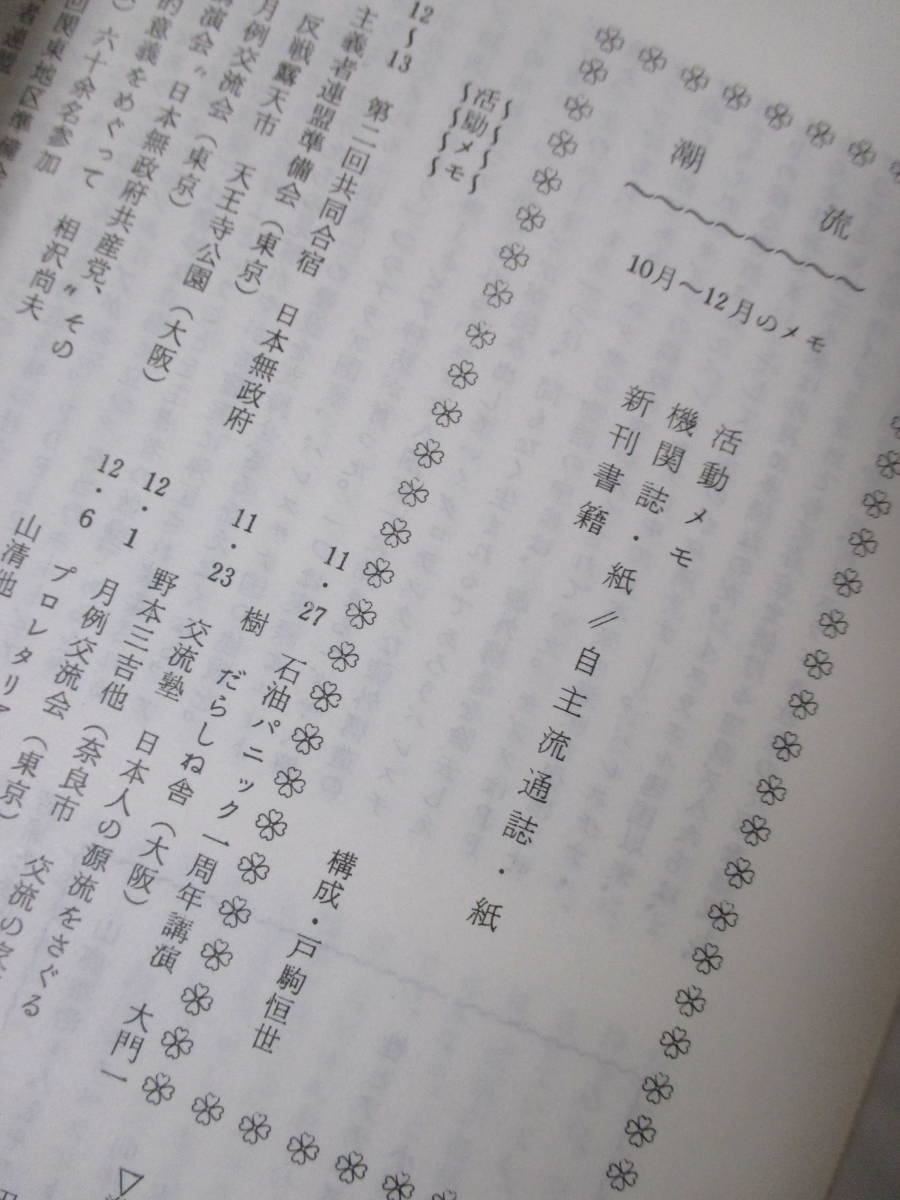 潮流
10月～12月のメモ
活動メモ
機関誌・紙∥自主流通誌・紙
新刊書籍
構成・戸駒恒世
活動メモ
12～13 第二回共同合宿 日本無政府
主義者連盟準備会（東京）
反戦露天市 天王寺公園（大阪）
月例交流会（東京）
演会〝日本無政府共産党、〟その
的意義をめぐって 相沢尚夫
六十余名参加
回関東地区準備会
者連盟
11・27 石油パニック一周年講演 大門一
樹 だらしね舎（大阪）
11・23 交流塾 日本人の源流をさぐる
野本三吉他（奈良市 交流の家
12・1 月例交流会（東京）
12・6 プロレタリア
山清他